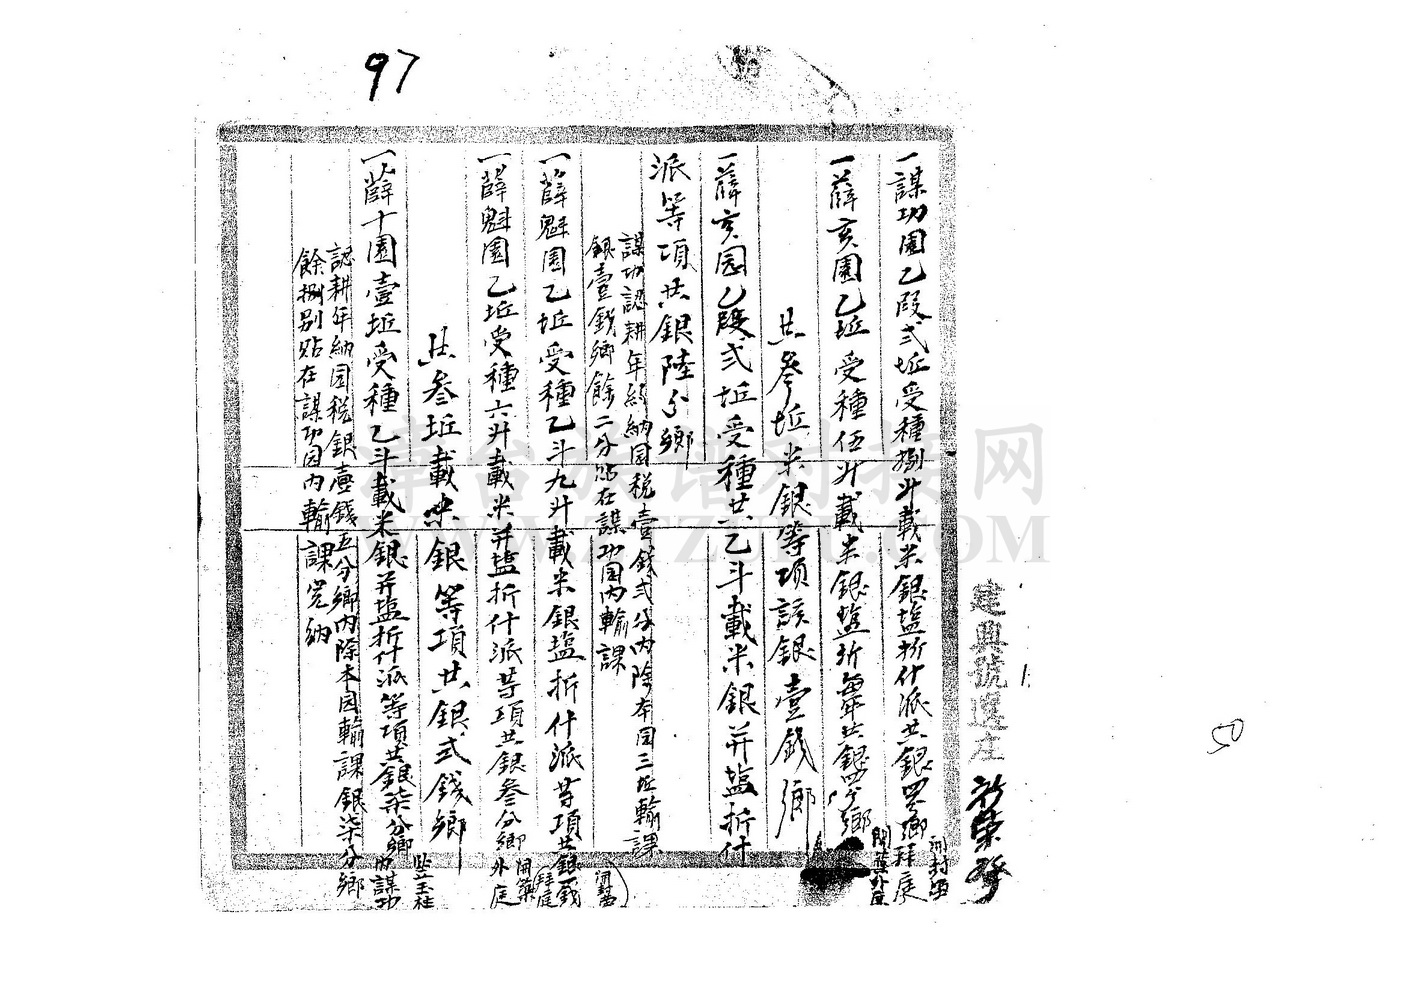 97
一謀功園乙段弍坵受種捌升載米銀塩折什派共銀四分鄉拜庭
一薛亥園乙坵受種伍升載米銀塩折每年共銀四分鄉
共參坵米銀等項該銀壹錢鄉
一薛亥园乙段弍坵受種共乙斗載米銀并塩折什
派等項共銀陸分鄉
謀功認耕年納园税壹錢弍分內除本园三坵輸課
銀壹錢鄉餘二分貼在謀功园內輸課
一薛魁園乙坵受種乙斗九升載米銀塩折什派等項共銀一錢
一薛魁園乙坵受種六升載米并塩折什派等項共銀參分鄉外庭
共參坵載米銀等項共銀弍錢鄉
一薛十園壹坵受種乙斗載米銀并塩折什派等項共銀柒分鄉
認耕年納园税銀壹錢五分鄉內除本园輸課銀柒分鄉
餘捌別貼在謀功园內輸課完納
建興號
50
WWW.TZUPU.COM